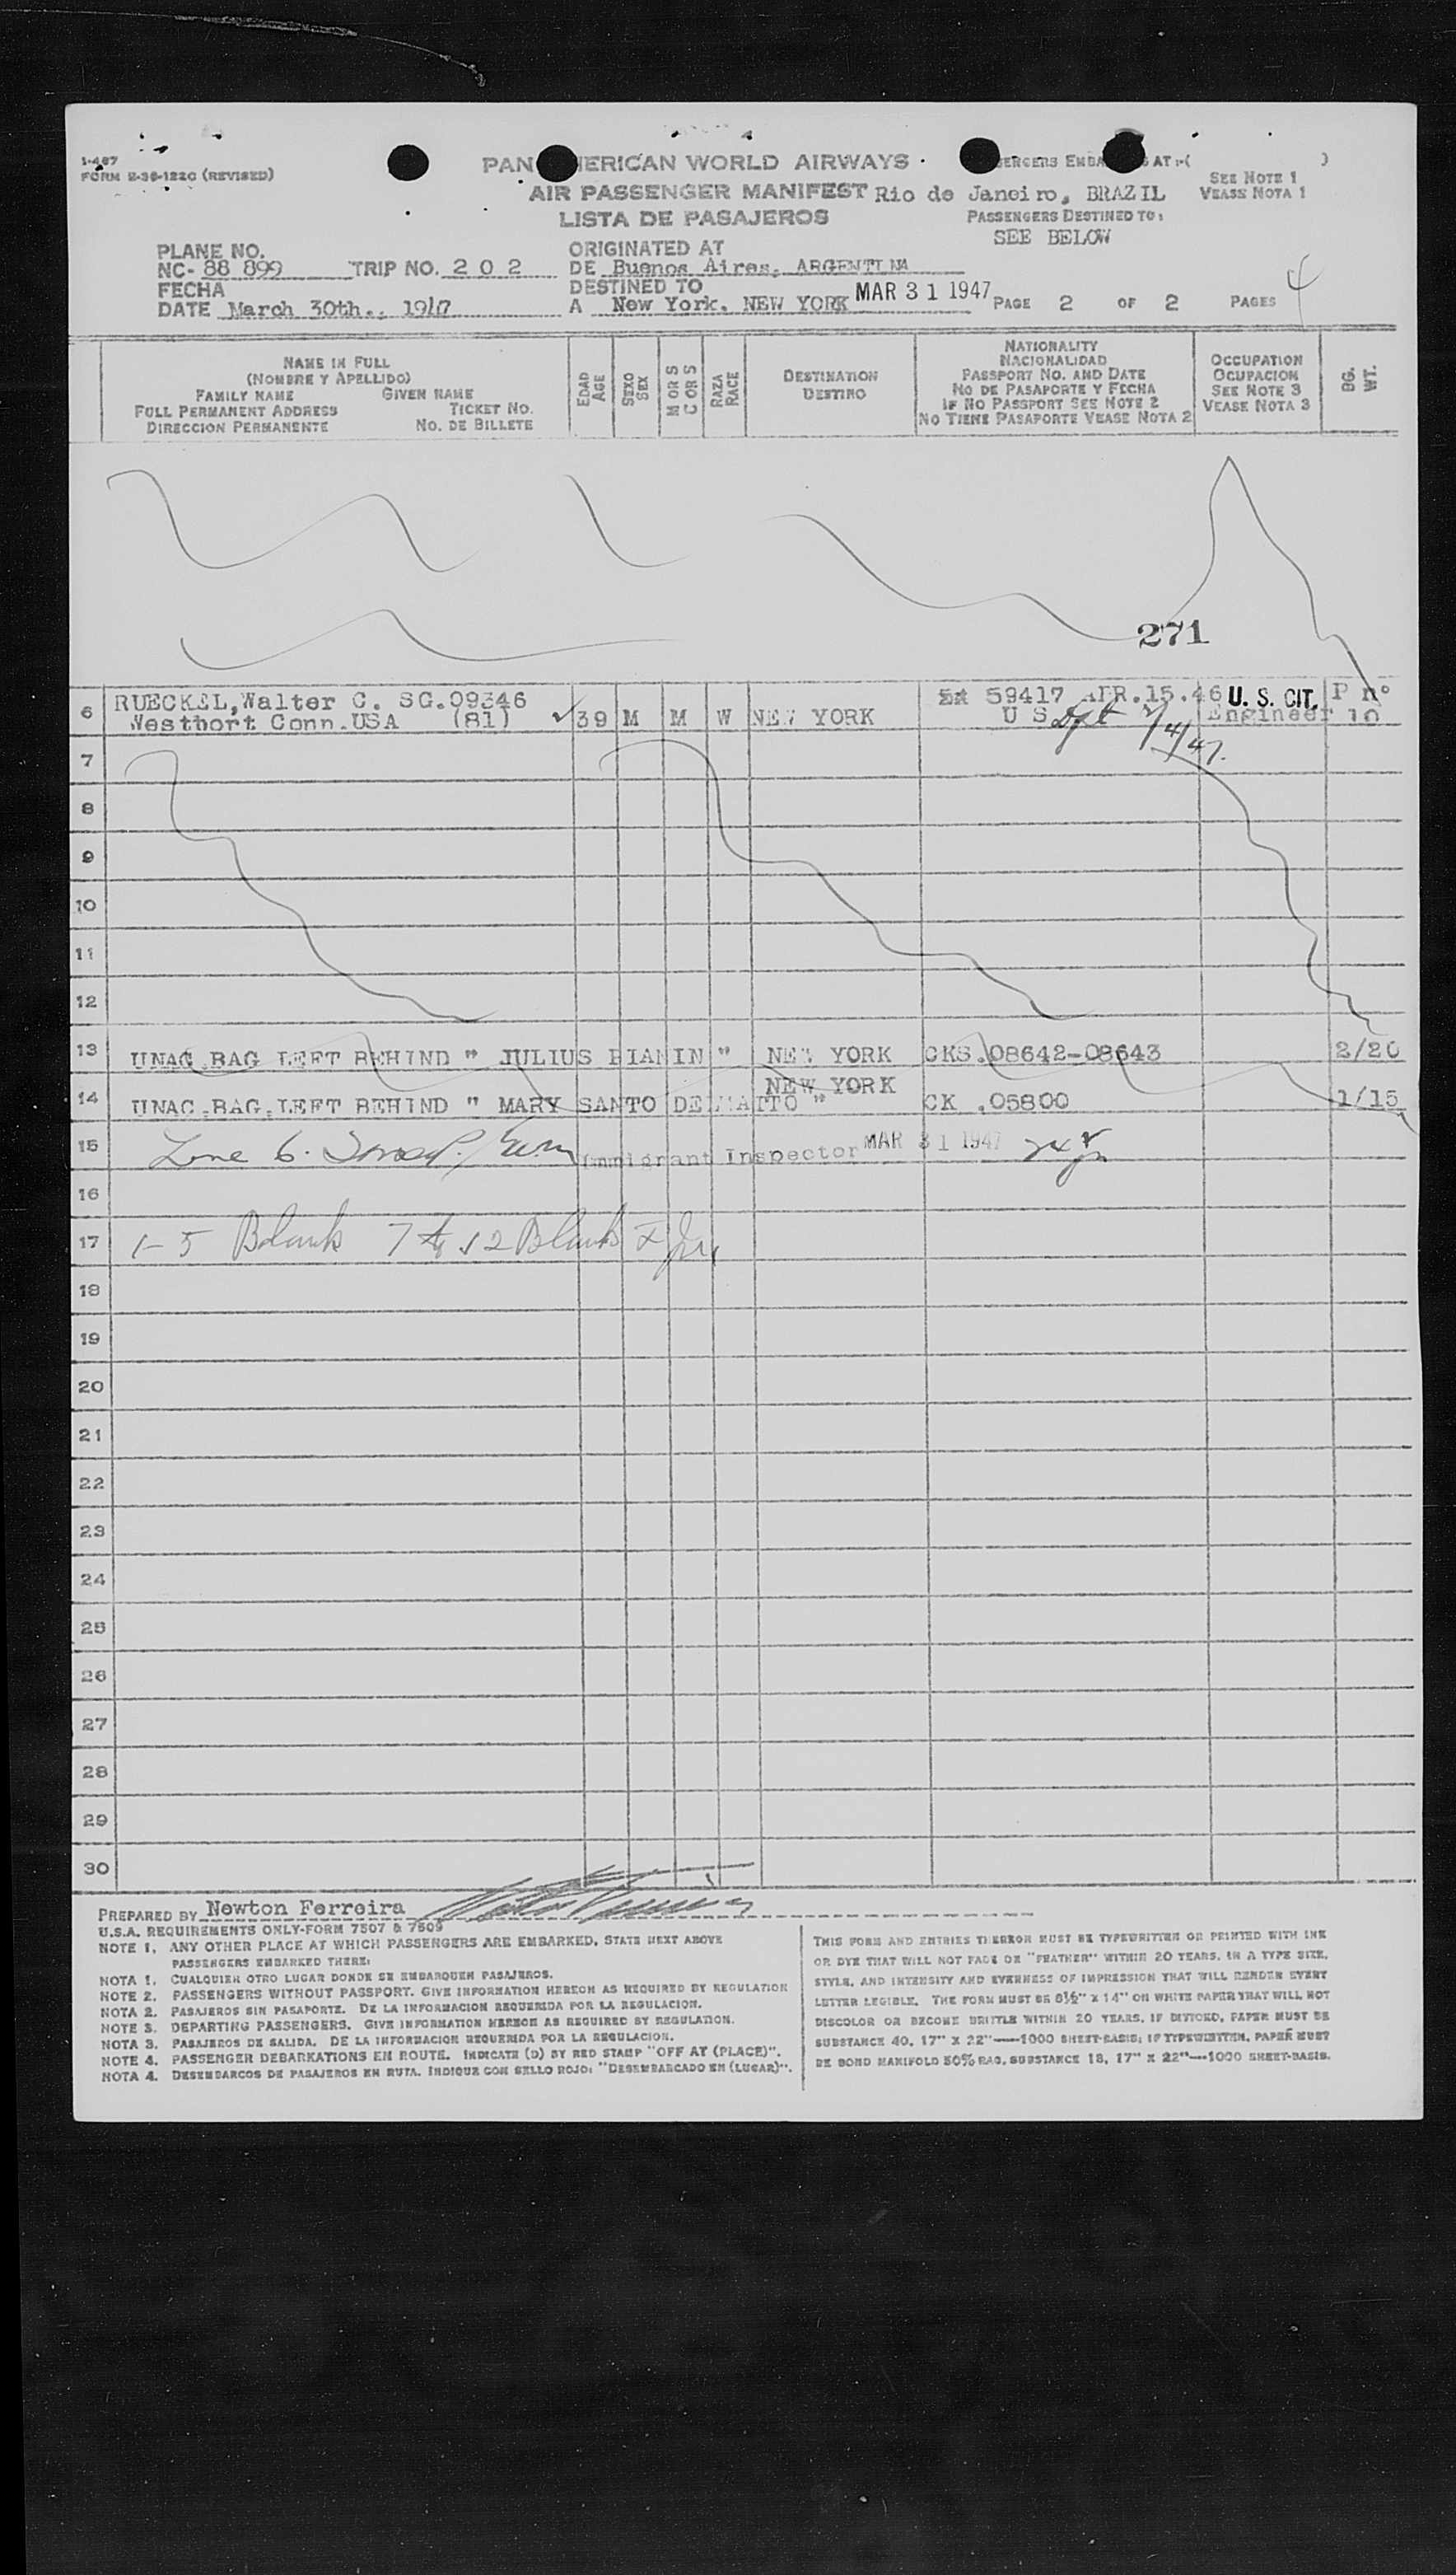 1-487
FORM E-36-122C (REVISED)
PAN AMERICAN WORLD AIRWAYS
AIR PASSENGER MANIFEST
LISTA DE PASAJEROS
Rio de Janeiro, BRAZIL
AT:-( )
SEE NOTE 1
VEASE NOTA 1
PASSENGERS DESTINED TO:
SEE BELOW
PLANE NO.
NC- 88 899 TRIP NO. 2 0 2
FECHA
DATE March 30th., 1947
ORIGINATED AT
DE Buenos Aires, ARGENTINA
DESTINED TO
A New York, NEW YORK
MAR 31 1947
PAGE 2 OF 2 PAGES
4
NAME IN FULL
(NOMBRE Y APELLIDO)
FAMILY NAME GIVEN NAME
FULL PERMANENT ADDRESS TICKET NO.
DIRECCION PERMANENTE NO. DE BILLETE
EDAD
AGE
SEXO
SEX
M OR S
C OR S
RAZA
RACE
DESTINATION
DESTINO
NATIONALITY
NACIONALIDAD
PASSPORT NO. AND DATE
NO DE PASAPORTE Y FECHA
IF NO PASSPORT SEE NOTE 2
NO TIENE PASAPORTE VEASE NOTA 2
OCCUPATION
OCUPACION
SEE NOTE 3
VEASE NOTA 3
BG.
WT.
271
6 RUECKEL,Walter C. SG.09346
Westport Conn.USA (81) 39 M M W NEW YORK
59417 APR.15.46 U. S. CIT. P nº
U S Engineer 10
7
8
9
10
11
12
13 UNAC.BAG LEFT BEHIND " JULIUS PIANIN " NEW YORK CKS.08642-08643 2/20
14 UNAC.BAG.LEFT BEHIND " MARY SANTO DE MAITO " NEW YORK CK .05800 1/15
15 Line 6. Immigrant Inspector MAR 31 1947
16
17 1-5 Blank 7 to 12 Blank
18
19
20
21
22
23
24
25
26
27
28
29
30
PREPARED BY Newton Ferreira
U.S.A. REQUIREMENTS ONLY-FORM 7507 & 7509
NOTE 1. ANY OTHER PLACE AT WHICH PASSENGERS ARE EMBARKED, STATE NEXT ABOVE
PASSENGERS EMBARKED THERE:
NOTA 1. CUALQUIER OTRO LUGAR DONDE SE EMBARQUEN PASAJEROS.
NOTE 2. PASSENGERS WITHOUT PASSPORT. GIVE INFORMATION HEREON AS REQUIRED BY REGULATION
NOTA 2. PASAJEROS SIN PASAPORTE. DE LA INFORMACION REQUERIDA POR LA REGULACION.
NOTE 3. DEPARTING PASSENGERS. GIVE INFORMATION HEREON AS REQUIRED BY REGULATION.
NOTA 3. PASAJEROS DE SALIDA. DE LA INFORMACION REQUERIDA POR LA REGULACION.
NOTE 4. PASSENGER DEBARKATIONS EN ROUTE. INDICATE (D) BY RED STAMP "OFF AT (PLACE)".
NOTA 4. DESEMBARCOS DE PASAJEROS EN RUTA. INDIQUE CON SELLO ROJO: "DESEMBARCADO EN (LUGAR)".
THIS FORM AND ENTRIES THEREON MUST BE TYPEWRITTEN OR PRINTED WITH INK
OR DYE THAT WILL NOT FADE OR "FEATHER" WITHIN 20 YEARS, IN A TYPE SIZE,
STYLE, AND INTENSITY AND EVENNESS OF IMPRESSION THAT WILL RENDER EVERY
LETTER LEGIBLE. THE FORM MUST BE 8½" X 14" ON WHITE PAPER THAT WILL NOT
DISCOLOR OR BECOME BRITTLE WITHIN 20 YEARS. IF DIVIDED, PAPER MUST BE
SUBSTANCE 40, 17" X 22"—1000 SHEET-BASIS; IF TYPEWRITTEN, PAPER MUST
BE BOND MANIFOLD 50% RAG, SUBSTANCE 18, 17" X 22"—1000 SHEET-BASIS.